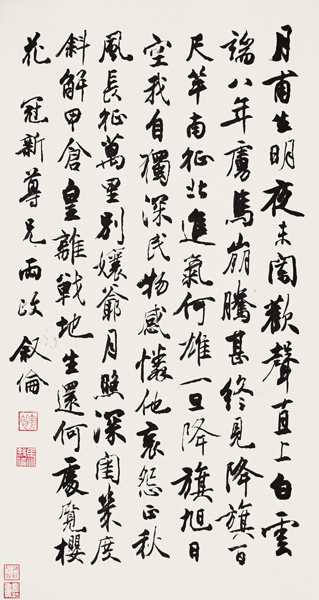 月甫生明夜未闌歡聲直上白雲
端八年虜馬崩騰甚終見降旗百
尺竿南征北進氣何雄一旦降旗旭日
空我自獨深民物感憐他哀怨正秋
風長征萬里別孃爺月照深閨幾度
斜解甲倉皇離戰地生還何處覽櫻
花 冠新尊兄兩政 叙倫